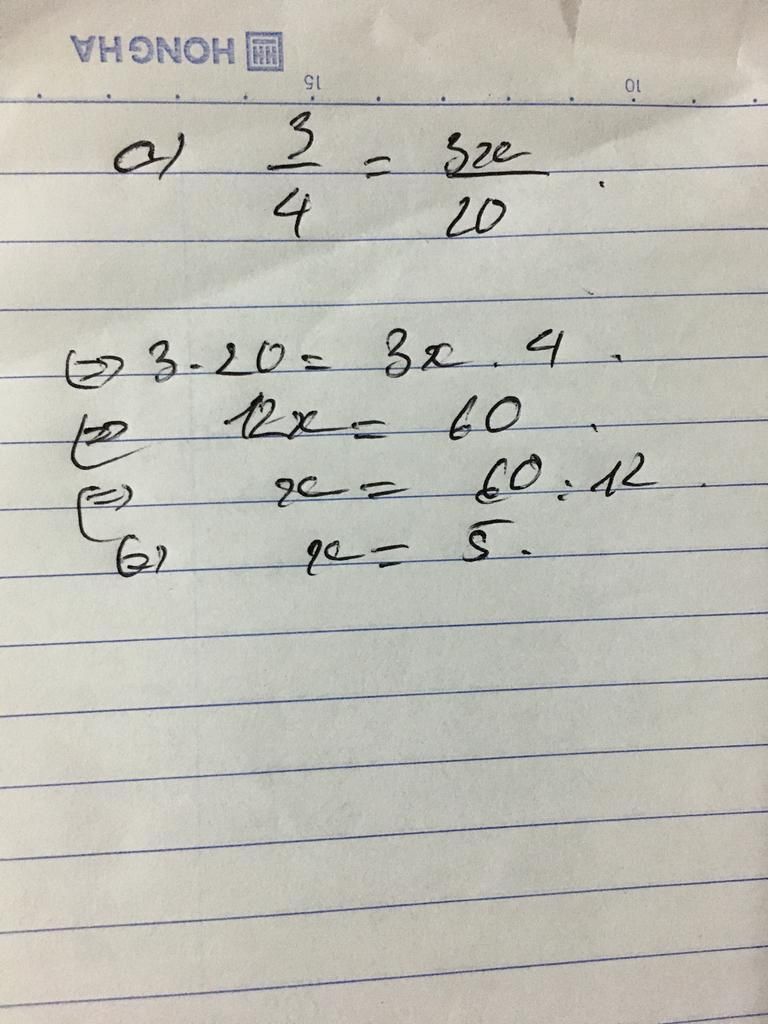 HONG HA
15 10
a) 3/4 = 3x/20 .
⇔ 3 . 20 = 3x . 4 .
⇔ 12x = 60 .
⇔ x = 60 : 12 .
⇔ x = 5 .